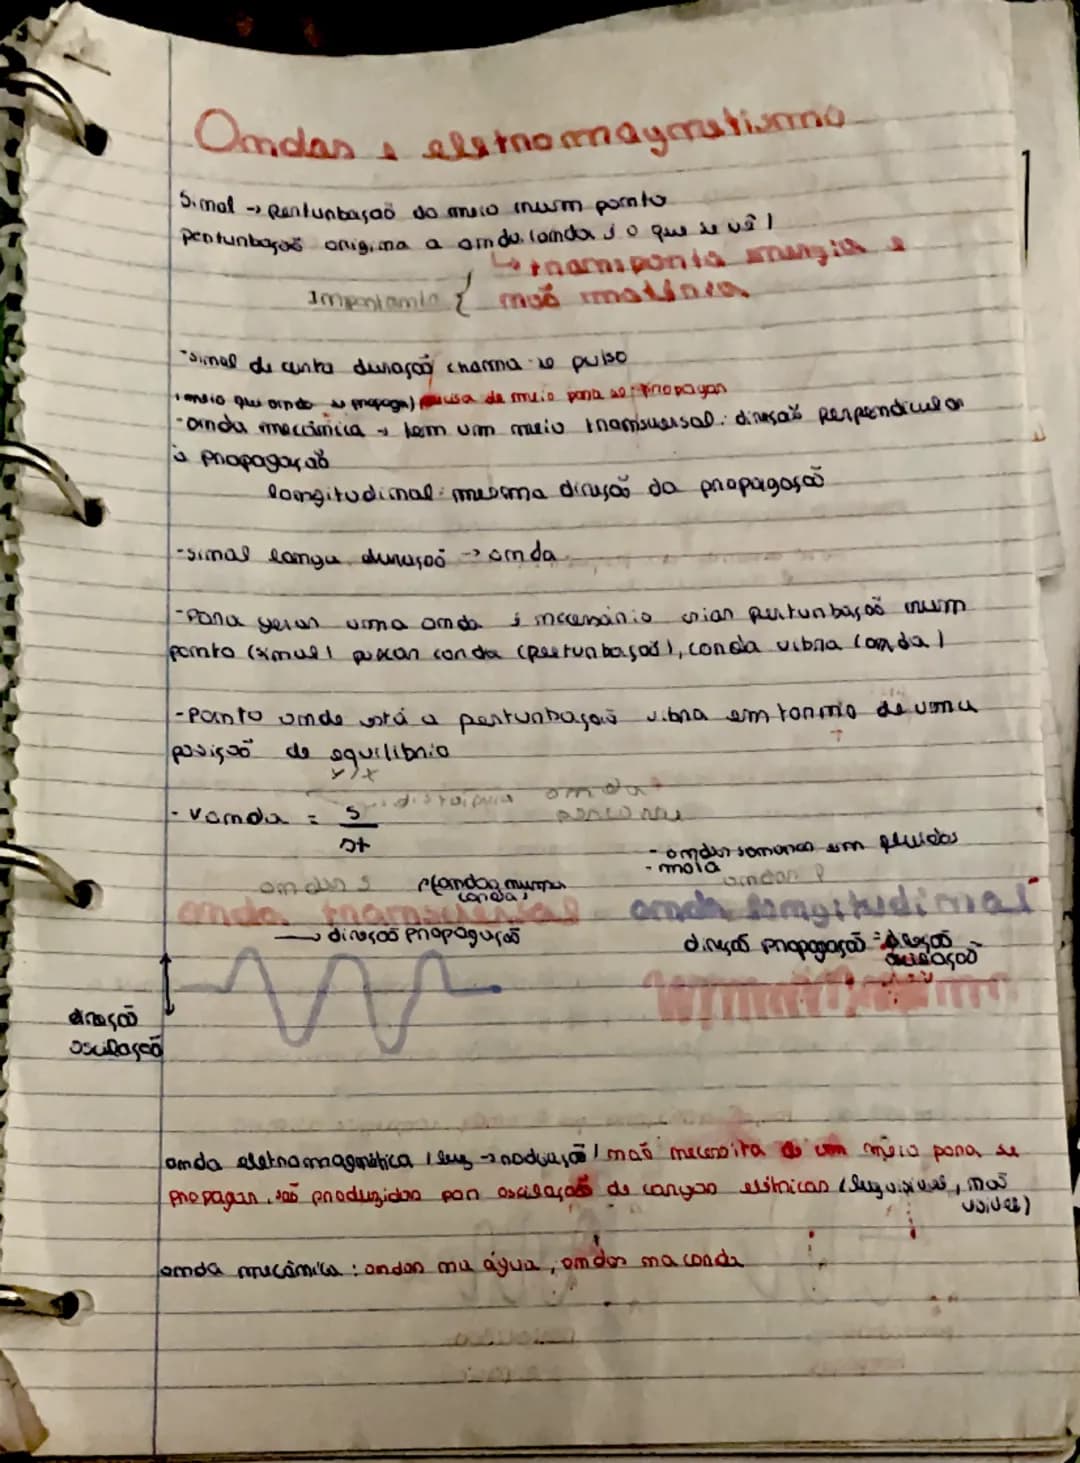 Ondas e eletromagnetismo
Sinal → Perturbação do meio num ponto
perturbação origina a onda (onda é o que se vê)
↳ transporta energia e
Importante { não matéria
-sinal de curta duração chama-se pulso
(meio que onda se propaga) precisa de meio para se propagar
-onda mecânica → tem um meio transversal: direção perpendicular
à propagação
longitudinal: mesma direção da propagação
-sinal longa duração → onda
-Para gerar uma onda é necessário criar perturbação num
ponto (sinal) puxar corda (perturbação), corda vibra (onda)
-Ponto onde está a perturbação vibra em torno de uma
posição de equilíbrio
- Vonda = s / Δt
distância onda
percorre
- ondas sonoras em fluidos
- mola
ondas S
(ondas numa
corda)
ondas P
onda transversal
onda longitudinal
→ direção propagação
direção propagação = direção
oscilação
direção
oscilação
onda eletromagnética (luz → radiação) não necessita de um meio para se
propagar. são produzidas por oscilação de cargas elétricas (luz visível, não
visível)
onda mecânica: ondas na água, ondas na corda